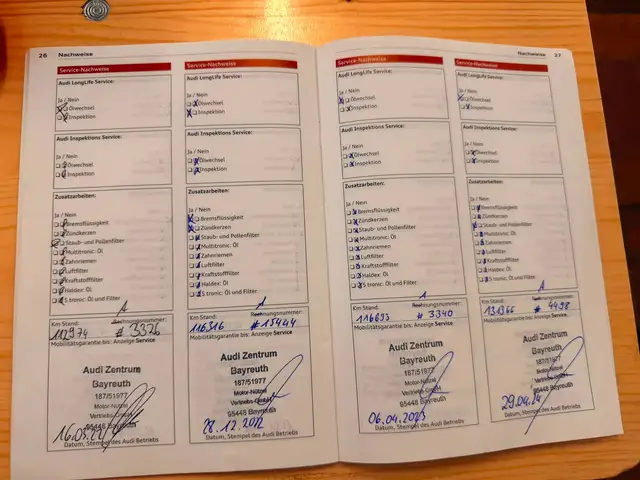 26 Nachweise
Service-Nachweise
Audi LongLife Service:
Ja / Nein
Ölwechsel
Inspektion
Audi Inspektions Service:
Ja / Nein
Ölwechsel
Inspektion
Zusatzarbeiten:
Ja / Nein
Bremsflüssigkeit
Zündkerzen
Staub- und Pollenfilter
Multitronic: Öl
Zahnriemen
Luftfilter
Kraftstofffilter
Haldex: Öl
S tronic: Öl und Filter
Km Stand: Rechnungsnummer:
112974 # 3326
Mobilitätsgarantie bis: Anzeige Service
Audi Zentrum
Bayreuth
187/51977
Motor-Nützel
Vertriebs-GmbH
95448 Bayreuth
16.03.22
Datum, Stempel des Audi Betriebs
Service-Nachweise
Audi LongLife Service:
Ja / Nein
Ölwechsel
Inspektion
Audi Inspektions Service:
Ja / Nein
Ölwechsel
Inspektion
Zusatzarbeiten:
Ja / Nein
Bremsflüssigkeit
Zündkerzen
Staub- und Pollenfilter
Multitronic: Öl
Zahnriemen
Luftfilter
Kraftstofffilter
Haldex: Öl
S tronic: Öl und Filter
Km Stand: Rechnungsnummer:
116316 # 15444
Mobilitätsgarantie bis: Anzeige Service
Audi Zentrum
Bayreuth
187/51977
Motor-Nützel
Vertriebs-GmbH
95448 Bayreuth
28.12.2022
Datum, Stempel des Audi Betriebs
Nachweise 27
Service-Nachweise
Audi LongLife Service:
Ja / Nein
Ölwechsel
Inspektion
Audi Inspektions Service:
Ja / Nein
Ölwechsel
Inspektion
Zusatzarbeiten:
Ja / Nein
Bremsflüssigkeit
Zündkerzen
Staub- und Pollenfilter
Multitronic: Öl
Zahnriemen
Luftfilter
Kraftstofffilter
Haldex: Öl
S tronic: Öl und Filter
Km Stand: Rechnungsnummer:
116693 # 3340
Mobilitätsgarantie bis: Anzeige Service
Audi Zentrum
Bayreuth
187/51977
Motor-Nützel
Vertriebs-GmbH
95448 Bayreuth
06.04.2023
Datum, Stempel des Audi Betriebs
Service-Nachweise
Audi LongLife Service:
Ja / Nein
Ölwechsel
Inspektion
Audi Inspektions Service:
Ja / Nein
Ölwechsel
Inspektion
Zusatzarbeiten:
Ja / Nein
Bremsflüssigkeit
Zündkerzen
Staub- und Pollenfilter
Multitronic: Öl
Zahnriemen
Luftfilter
Kraftstofffilter
Haldex: Öl
S tronic: Öl und Filter
Km Stand: Rechnungsnummer:
131366 # 4498
Mobilitätsgarantie bis: Anzeige Service
Audi Zentrum
Bayreuth
187/51977
Motor-Nützel
Vertriebs-GmbH
95448 Bayreuth
29.04.24
Datum, Stempel des Audi Betriebs